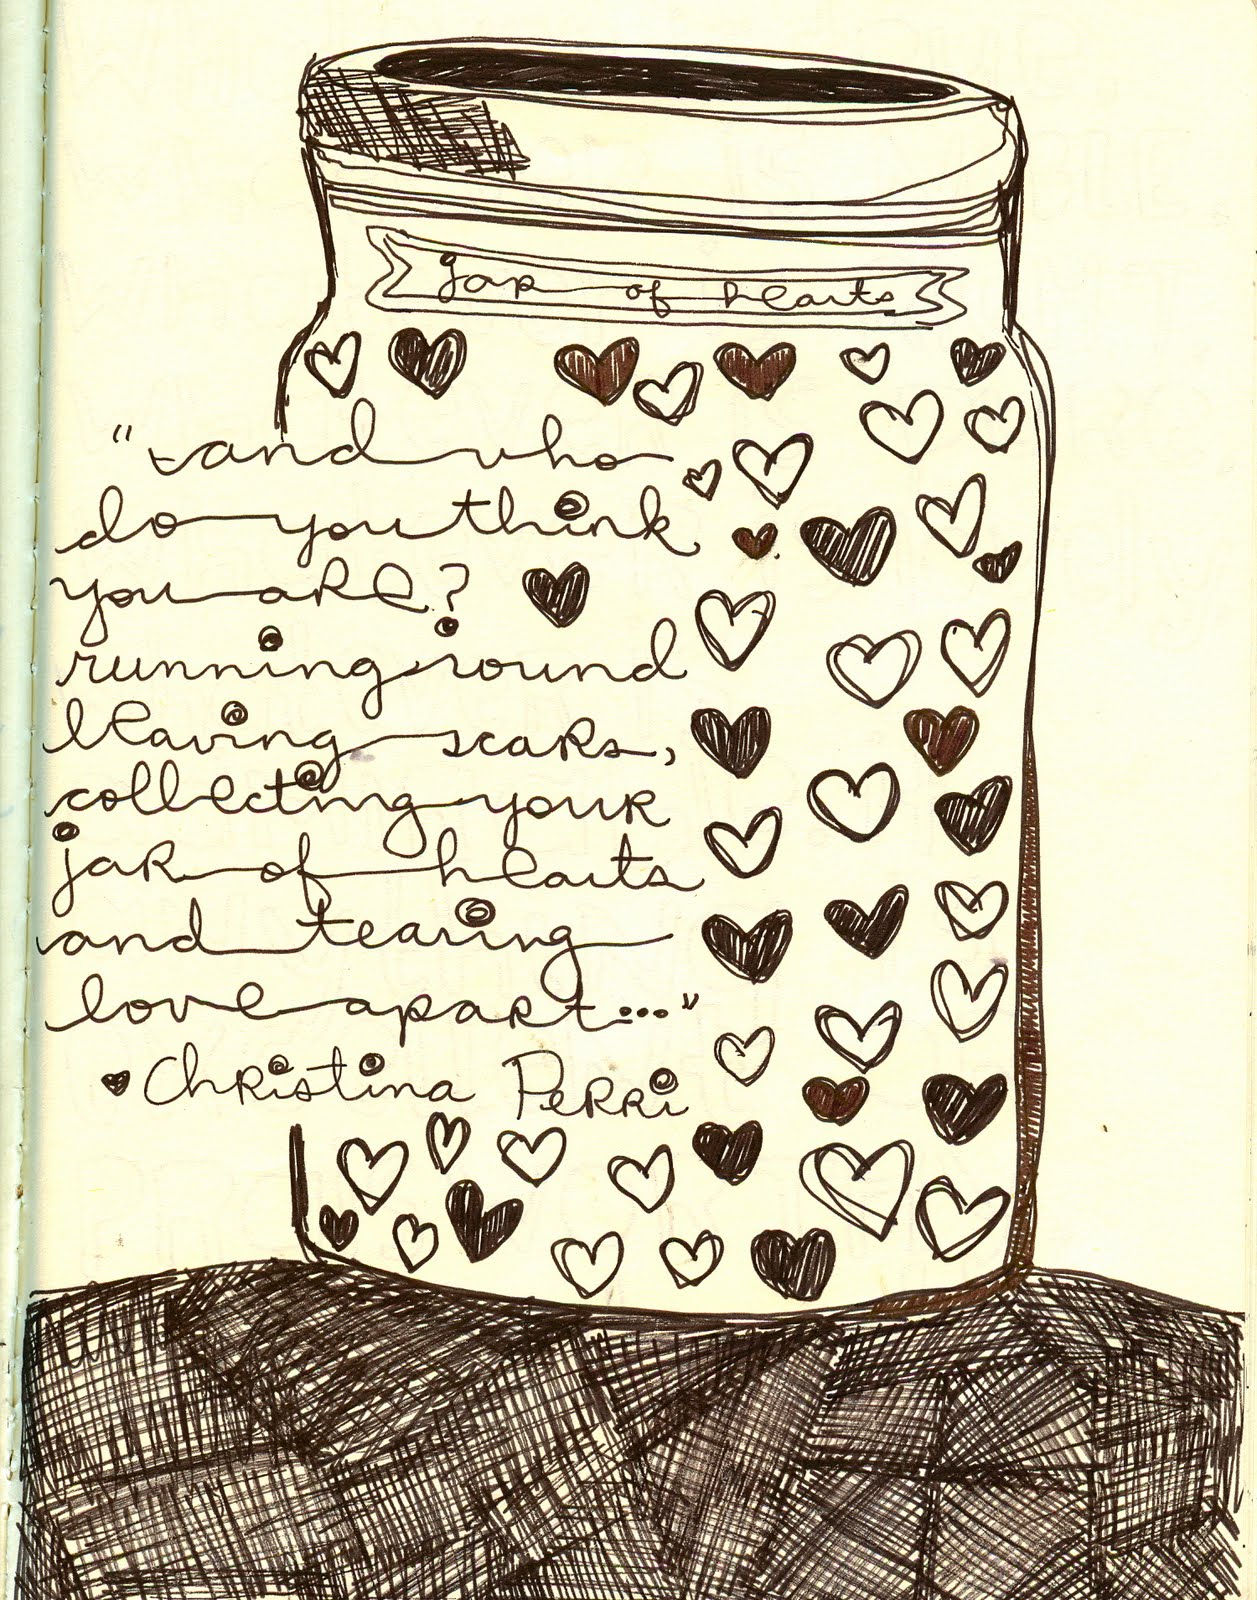 jar of hearts
"and who
do you think
you are?
running 'round
leaving scars,
collecting your
jar of hearts
and tearing
love apart..."
Christina Perri